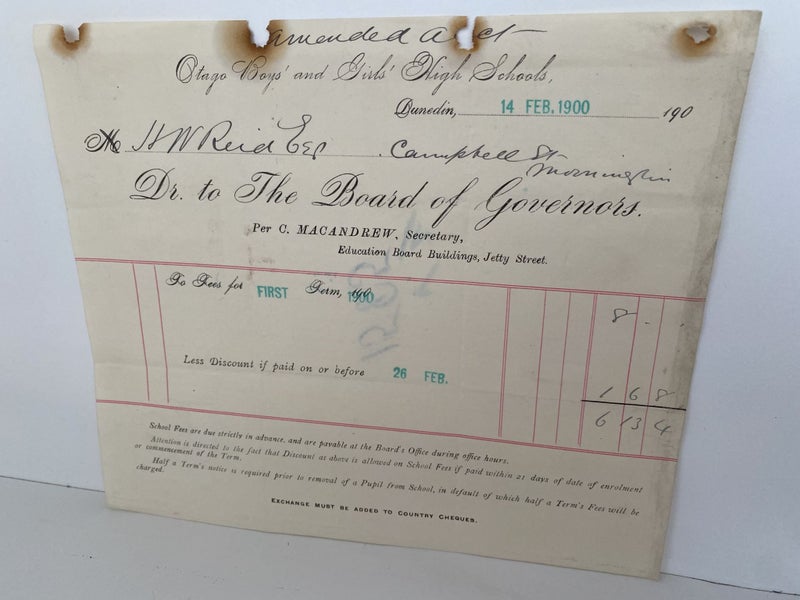 amended acct
Otago Boys' and Girls' High Schools,
Dunedin, 14 FEB. 1900 190
M H W Reid Esq Campbell St
Mornington
Dr. to The Board of Governors.
Per C. MACANDREW, Secretary,
Education Board Buildings, Jetty Street.
To Fees for FIRST Term, 190 1900
8 . .
Less Discount if paid on or before 26 FEB.
1 6 8
6 13 4
School Fees are due strictly in advance, and are payable at the Board's Office during office hours.
Attention is directed to the fact that Discount as above is allowed on School Fees if paid within 21 days of date of enrolment
or commencement of the Term.
Half a Term's notice is required prior to removal of a Pupil from School, in default of which half a Term's Fees will be
charged.
EXCHANGE MUST BE ADDED TO COUNTRY CHEQUES.